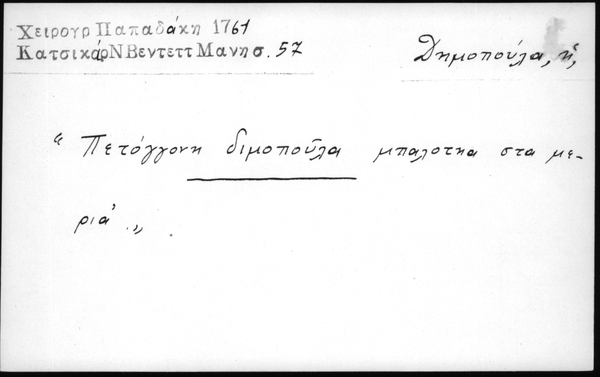 Χειρογρ Παπαδάκη 1761
ΚατσικάρΝΒεντεττΜανησ. 57
Δημοπούλα, ἡ,
“ Πετόγγονη διμοποῦλα μπαλοτκα στα με-
ριά „ .